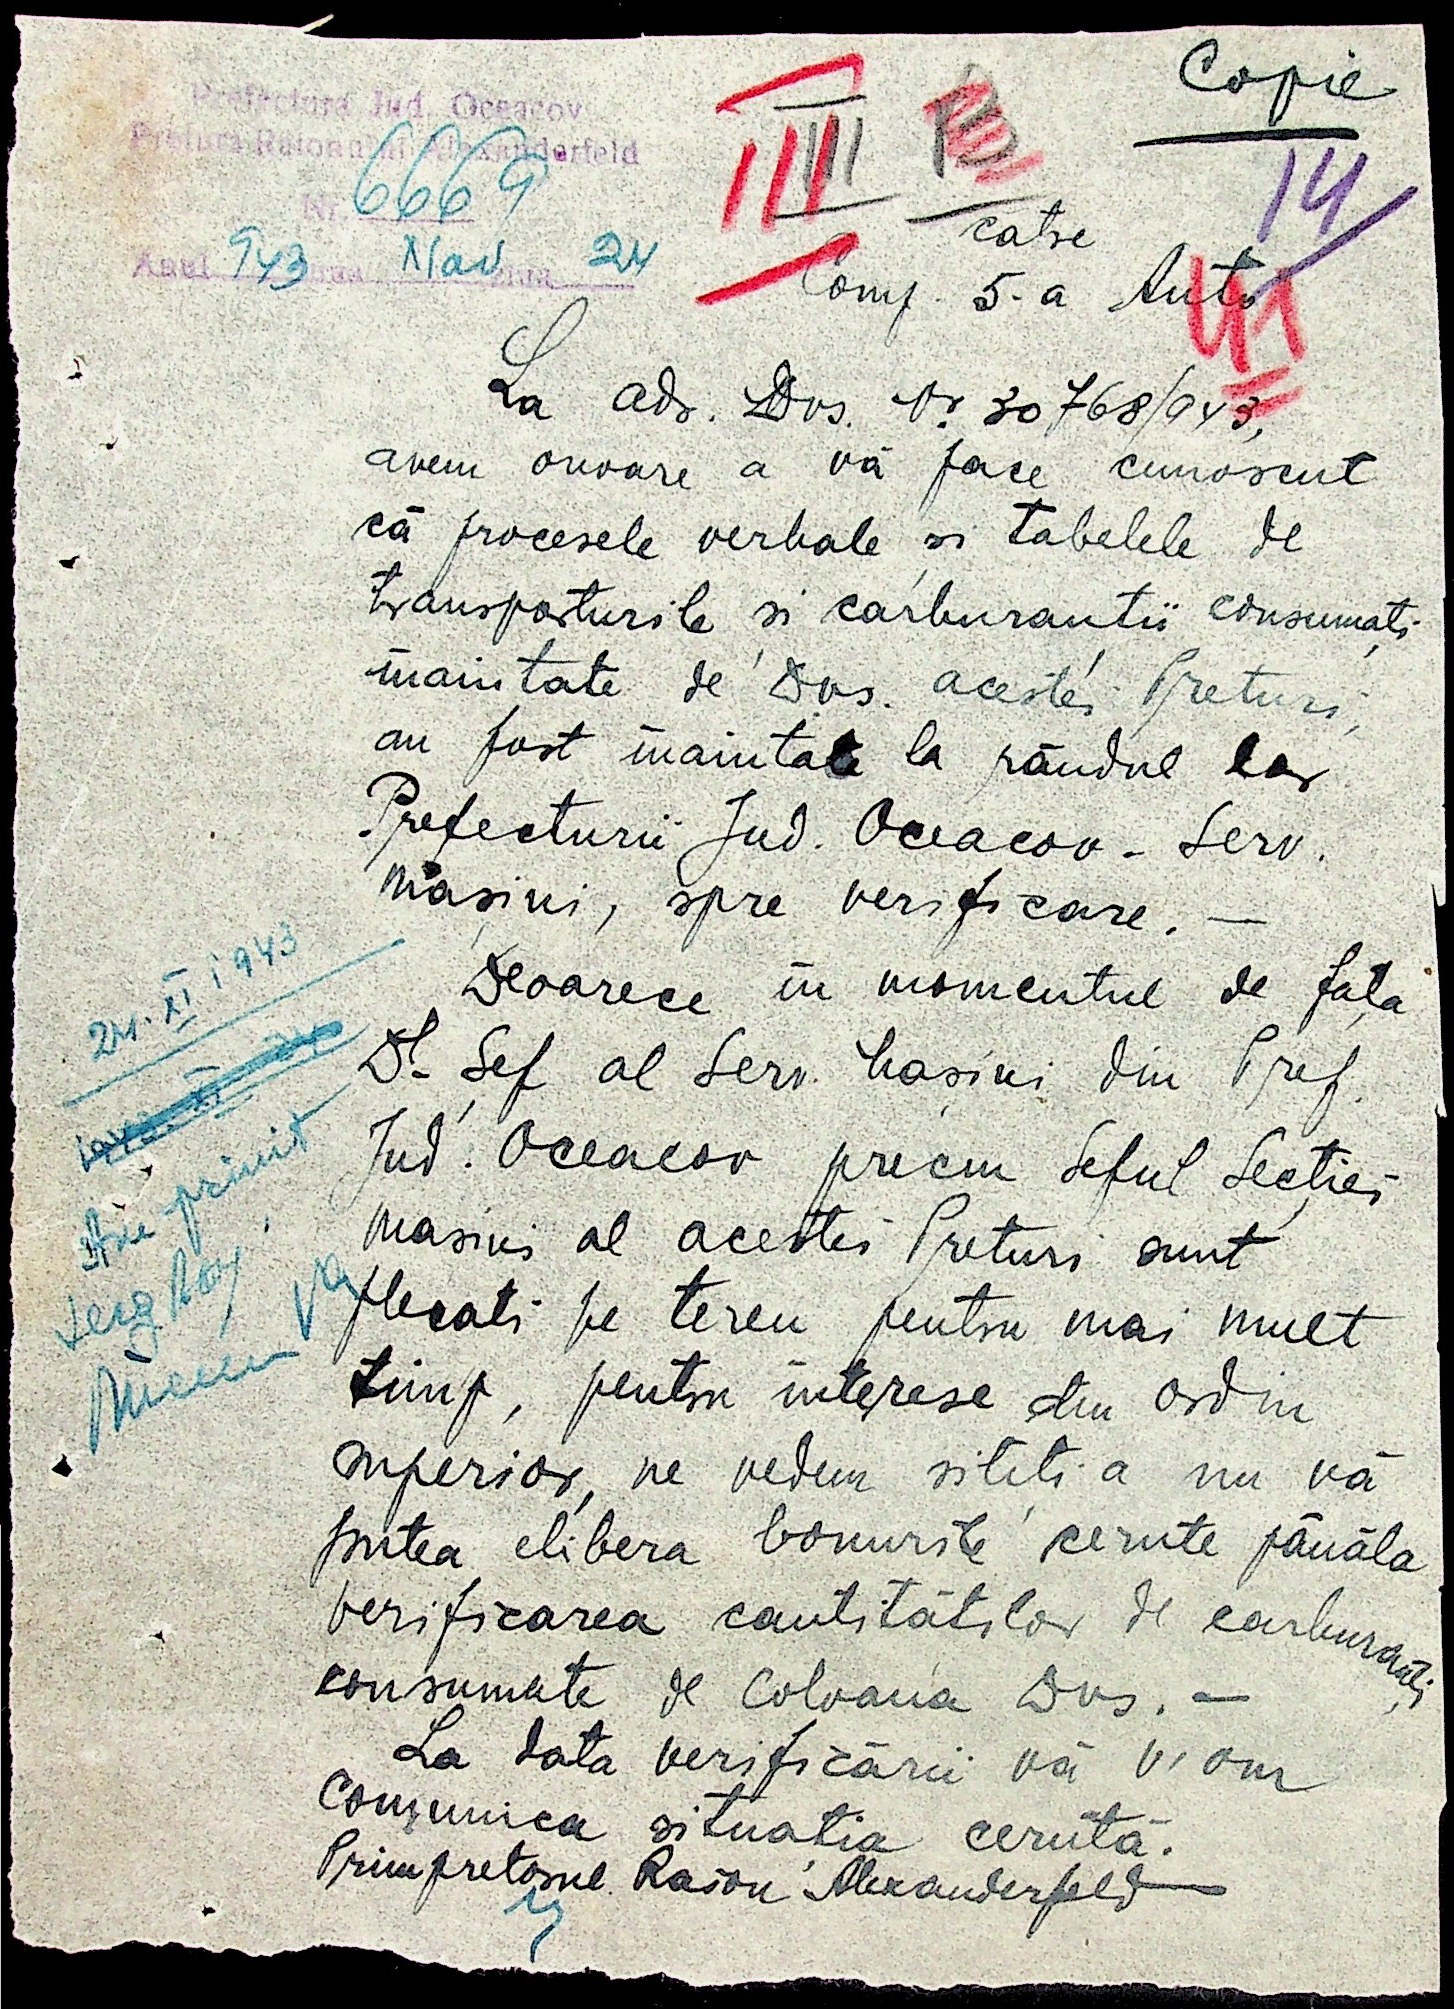 Copie
Prefectura Jud. Oceacov
Pretura Raionului Alexanderfeld
Nr. 6669
Anul 943 Luna Nov Ziua 24
III
14
41
catre
Comp. 5-a Auto
La adr. Dvs. Nr. 30768/943,
avem onoare a vă face cunoscut
că procesele verbale și tabelele de
transporturile si carburantii consumați
inaintate de Dvs. acestei Preturi,
au fost inaintate la rândul lor
Prefecturii Jud. Oceacov - Serv.
Mașini, spre verificare. —
Deoarece in momentul de fața
Dl. Șef al Serv. Mașini din Pref.
Jud. Oceacov precum Seful Secției
Masini al acestei Preturi sunt
plecati pe teren pentru mai mult
timp, pentru interese din ordin
superior, ne vedem siliti a nu vă
putea elibera bonurile cerute pănăla
verificarea cantitătilor de carburanți
consumate de Coloana Dvs. —
La data verificării vă v'om
comunica situatia cerută.
Primpretorul Raion Alexanderfeld
24.XI 1943
Am primit